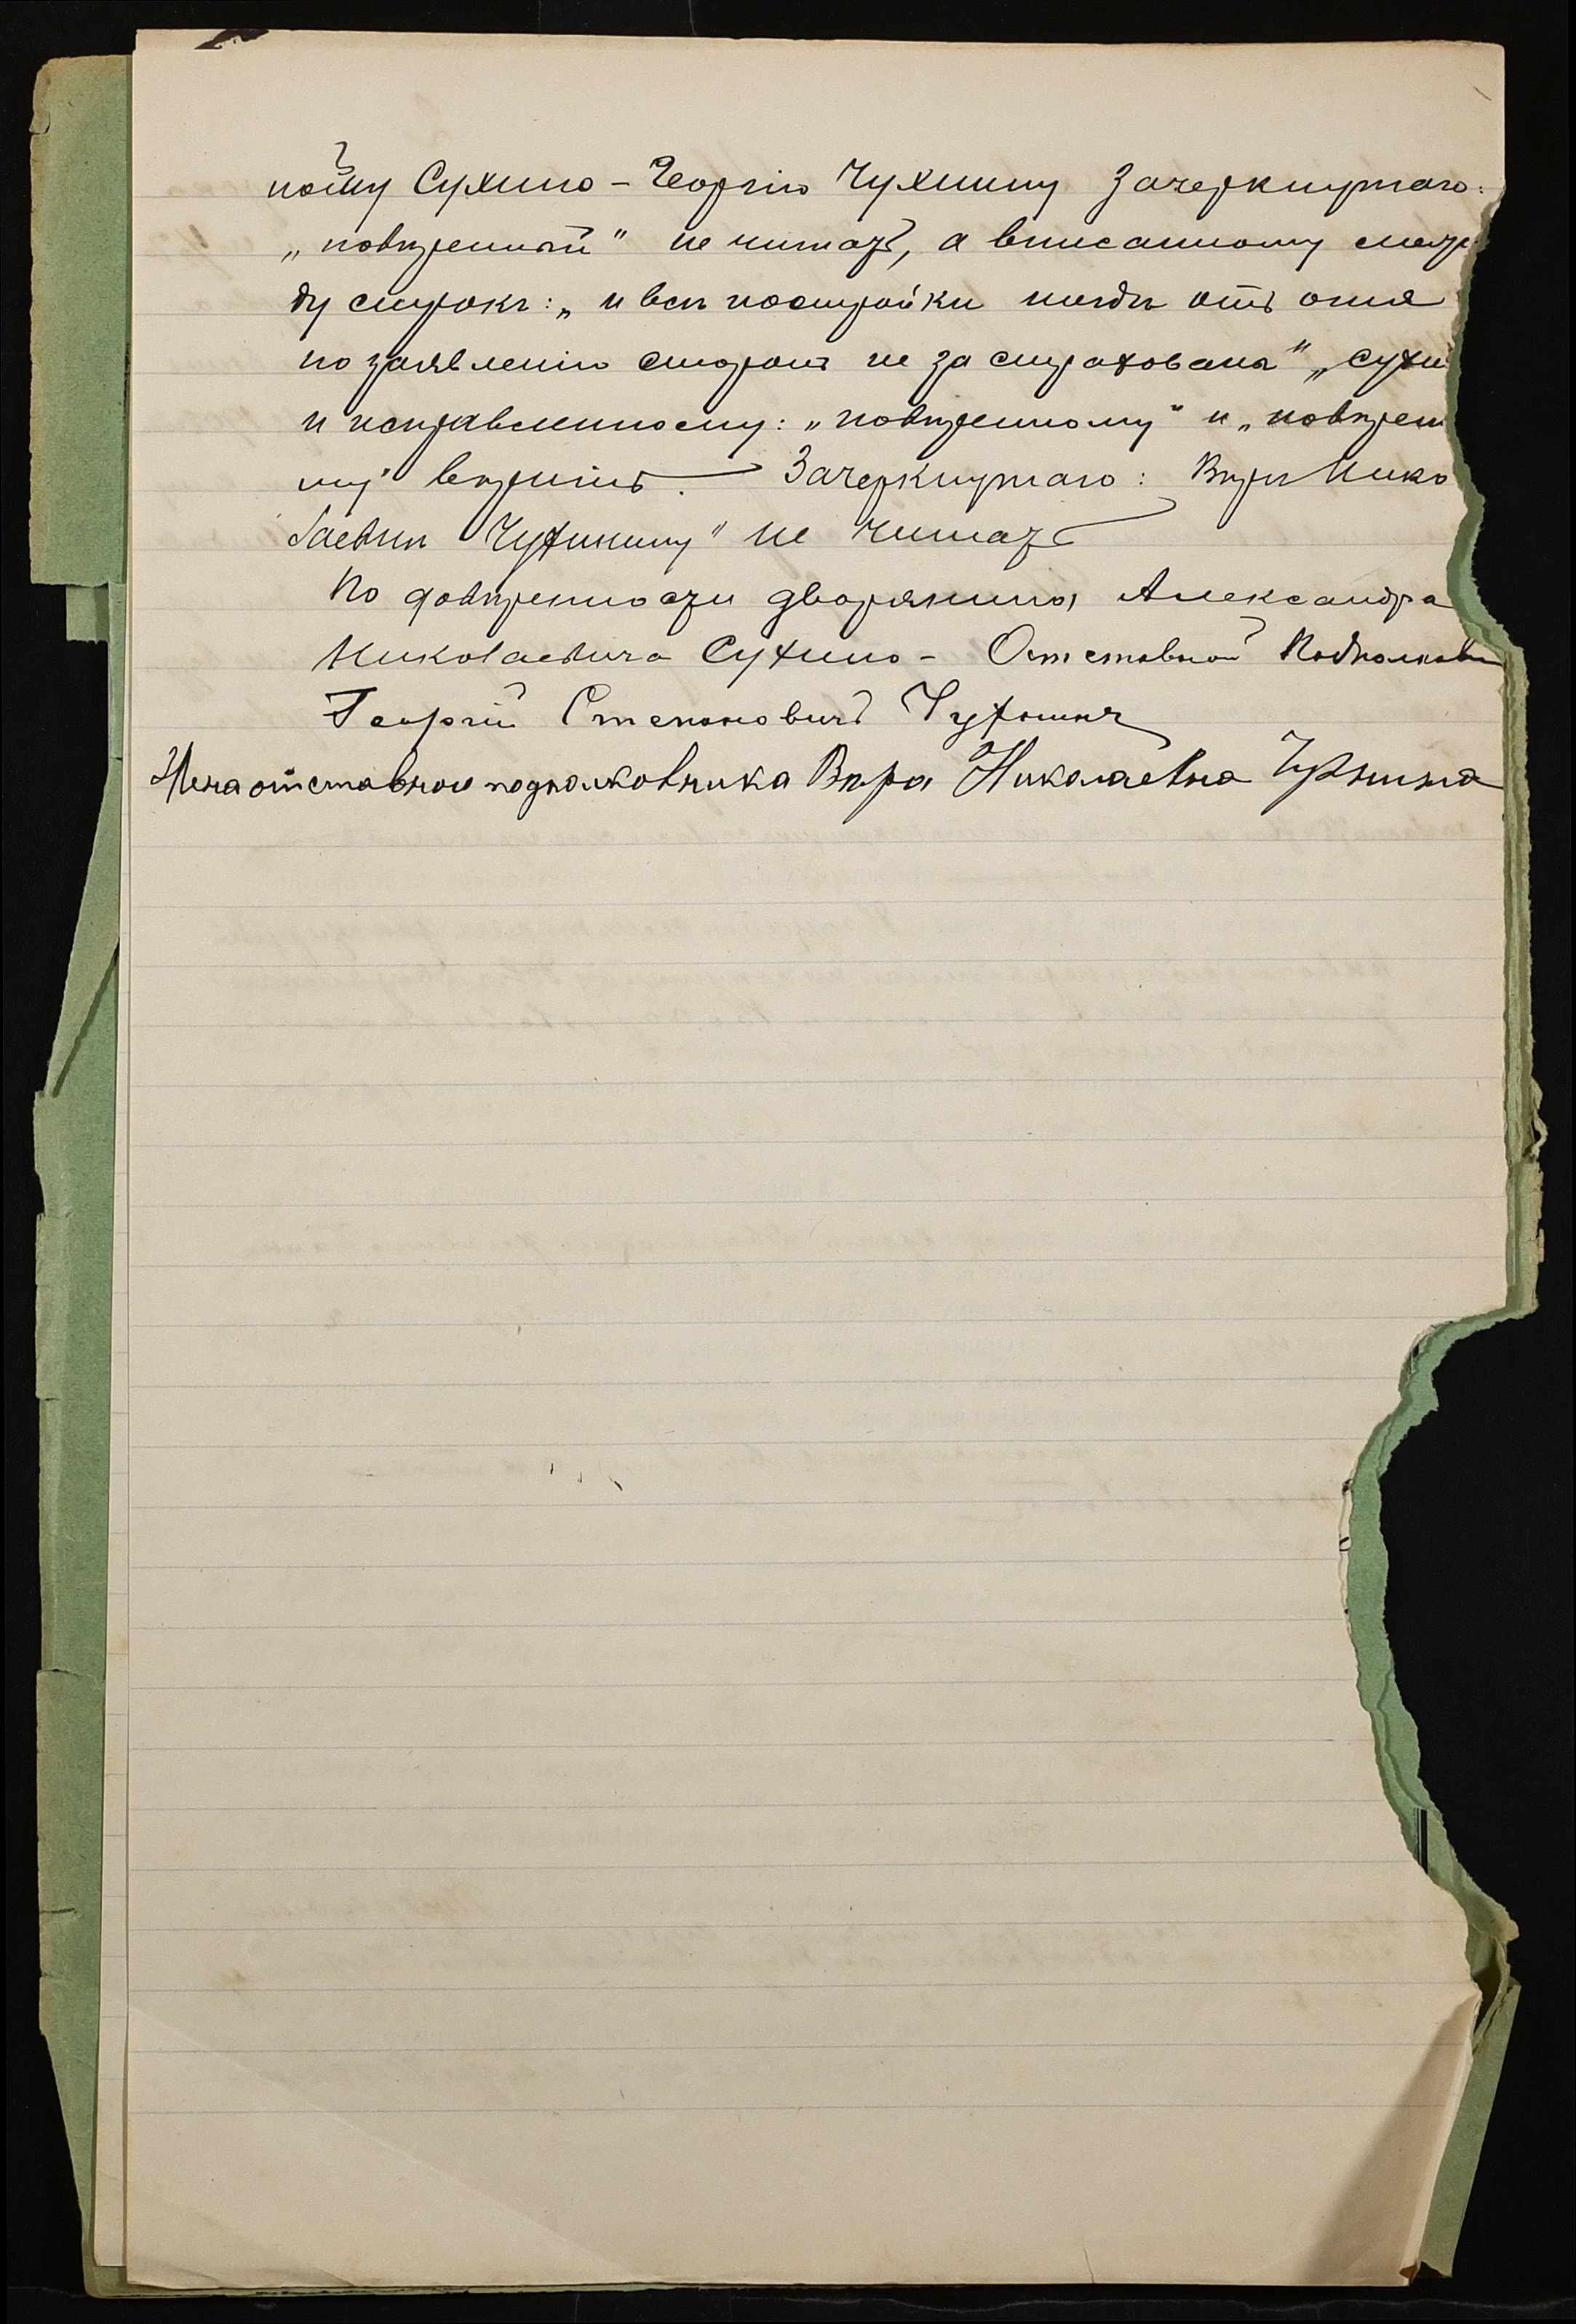 ному Сухино – Георгію Чухнину Зачеркнутаго:
„повѣренный" не читать, а вписанному меж
ду строкъ: „и всѣ постройки нигдѣ отъ огня
по заявленію сторонъ не застрахованы" „Сухи
и исправленному: „повѣренному" и „повѣрен
му" вѣрить. Зачеркнутаго: Вѣрѣ Нико
лаевнѣ Чухниной" не читать
По довѣренности дворянина Александра
Николаевича Сухино – Отставной Подполковн
Георгій Степановичъ Чухнинъ
Жена отставного подполковника Вѣра Николаевна Чухнина